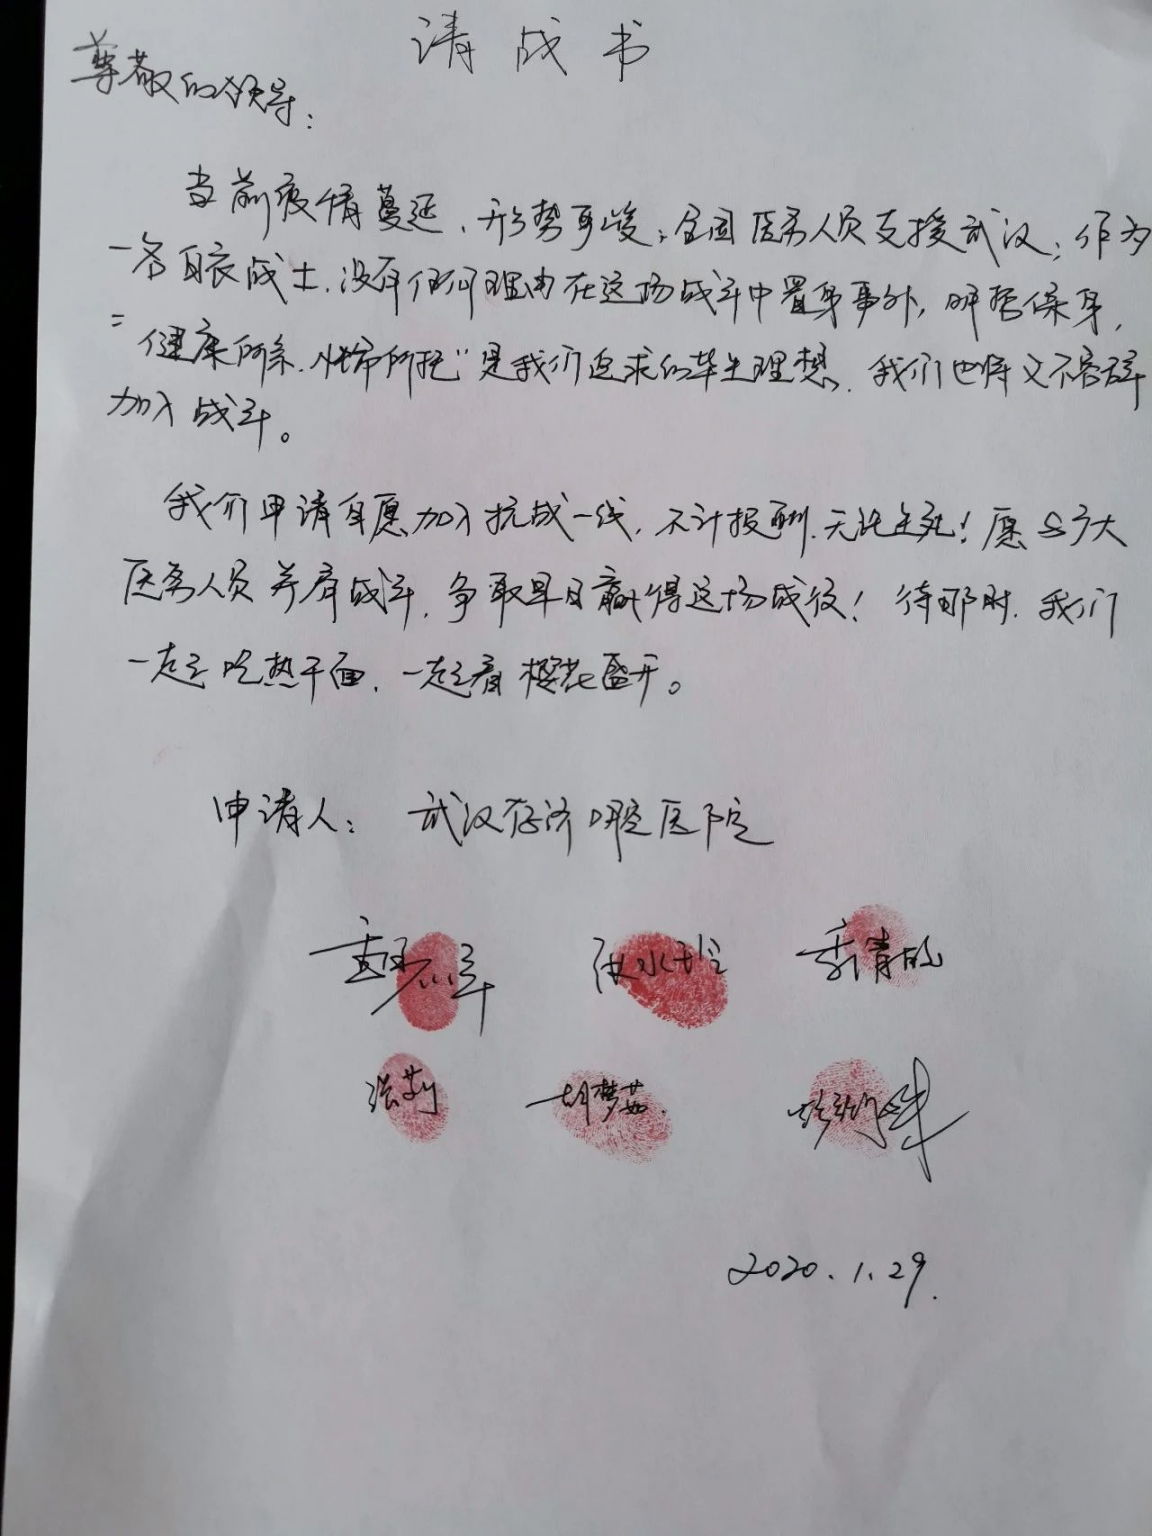 请战书
尊敬的领导：
当前疫情蔓延、形势严峻，全国医务人员支援武汉，作为
一名白衣战士，没有任何理由在这场战斗中置身事外，明哲保身，
“健康所系、性命所托”是我们追求的毕生理想，我们也将义不容辞
加入战斗。
我们申请自愿加入抗战一线，不计报酬、无论生死！愿与广大
医务人员并肩战斗，争取早日赢得这场战役！待那时，我们
一起吃热干面，一起看樱花盛开。
申请人： 武汉存济口腔医院
张莉 胡梦茹
2020.1.29.